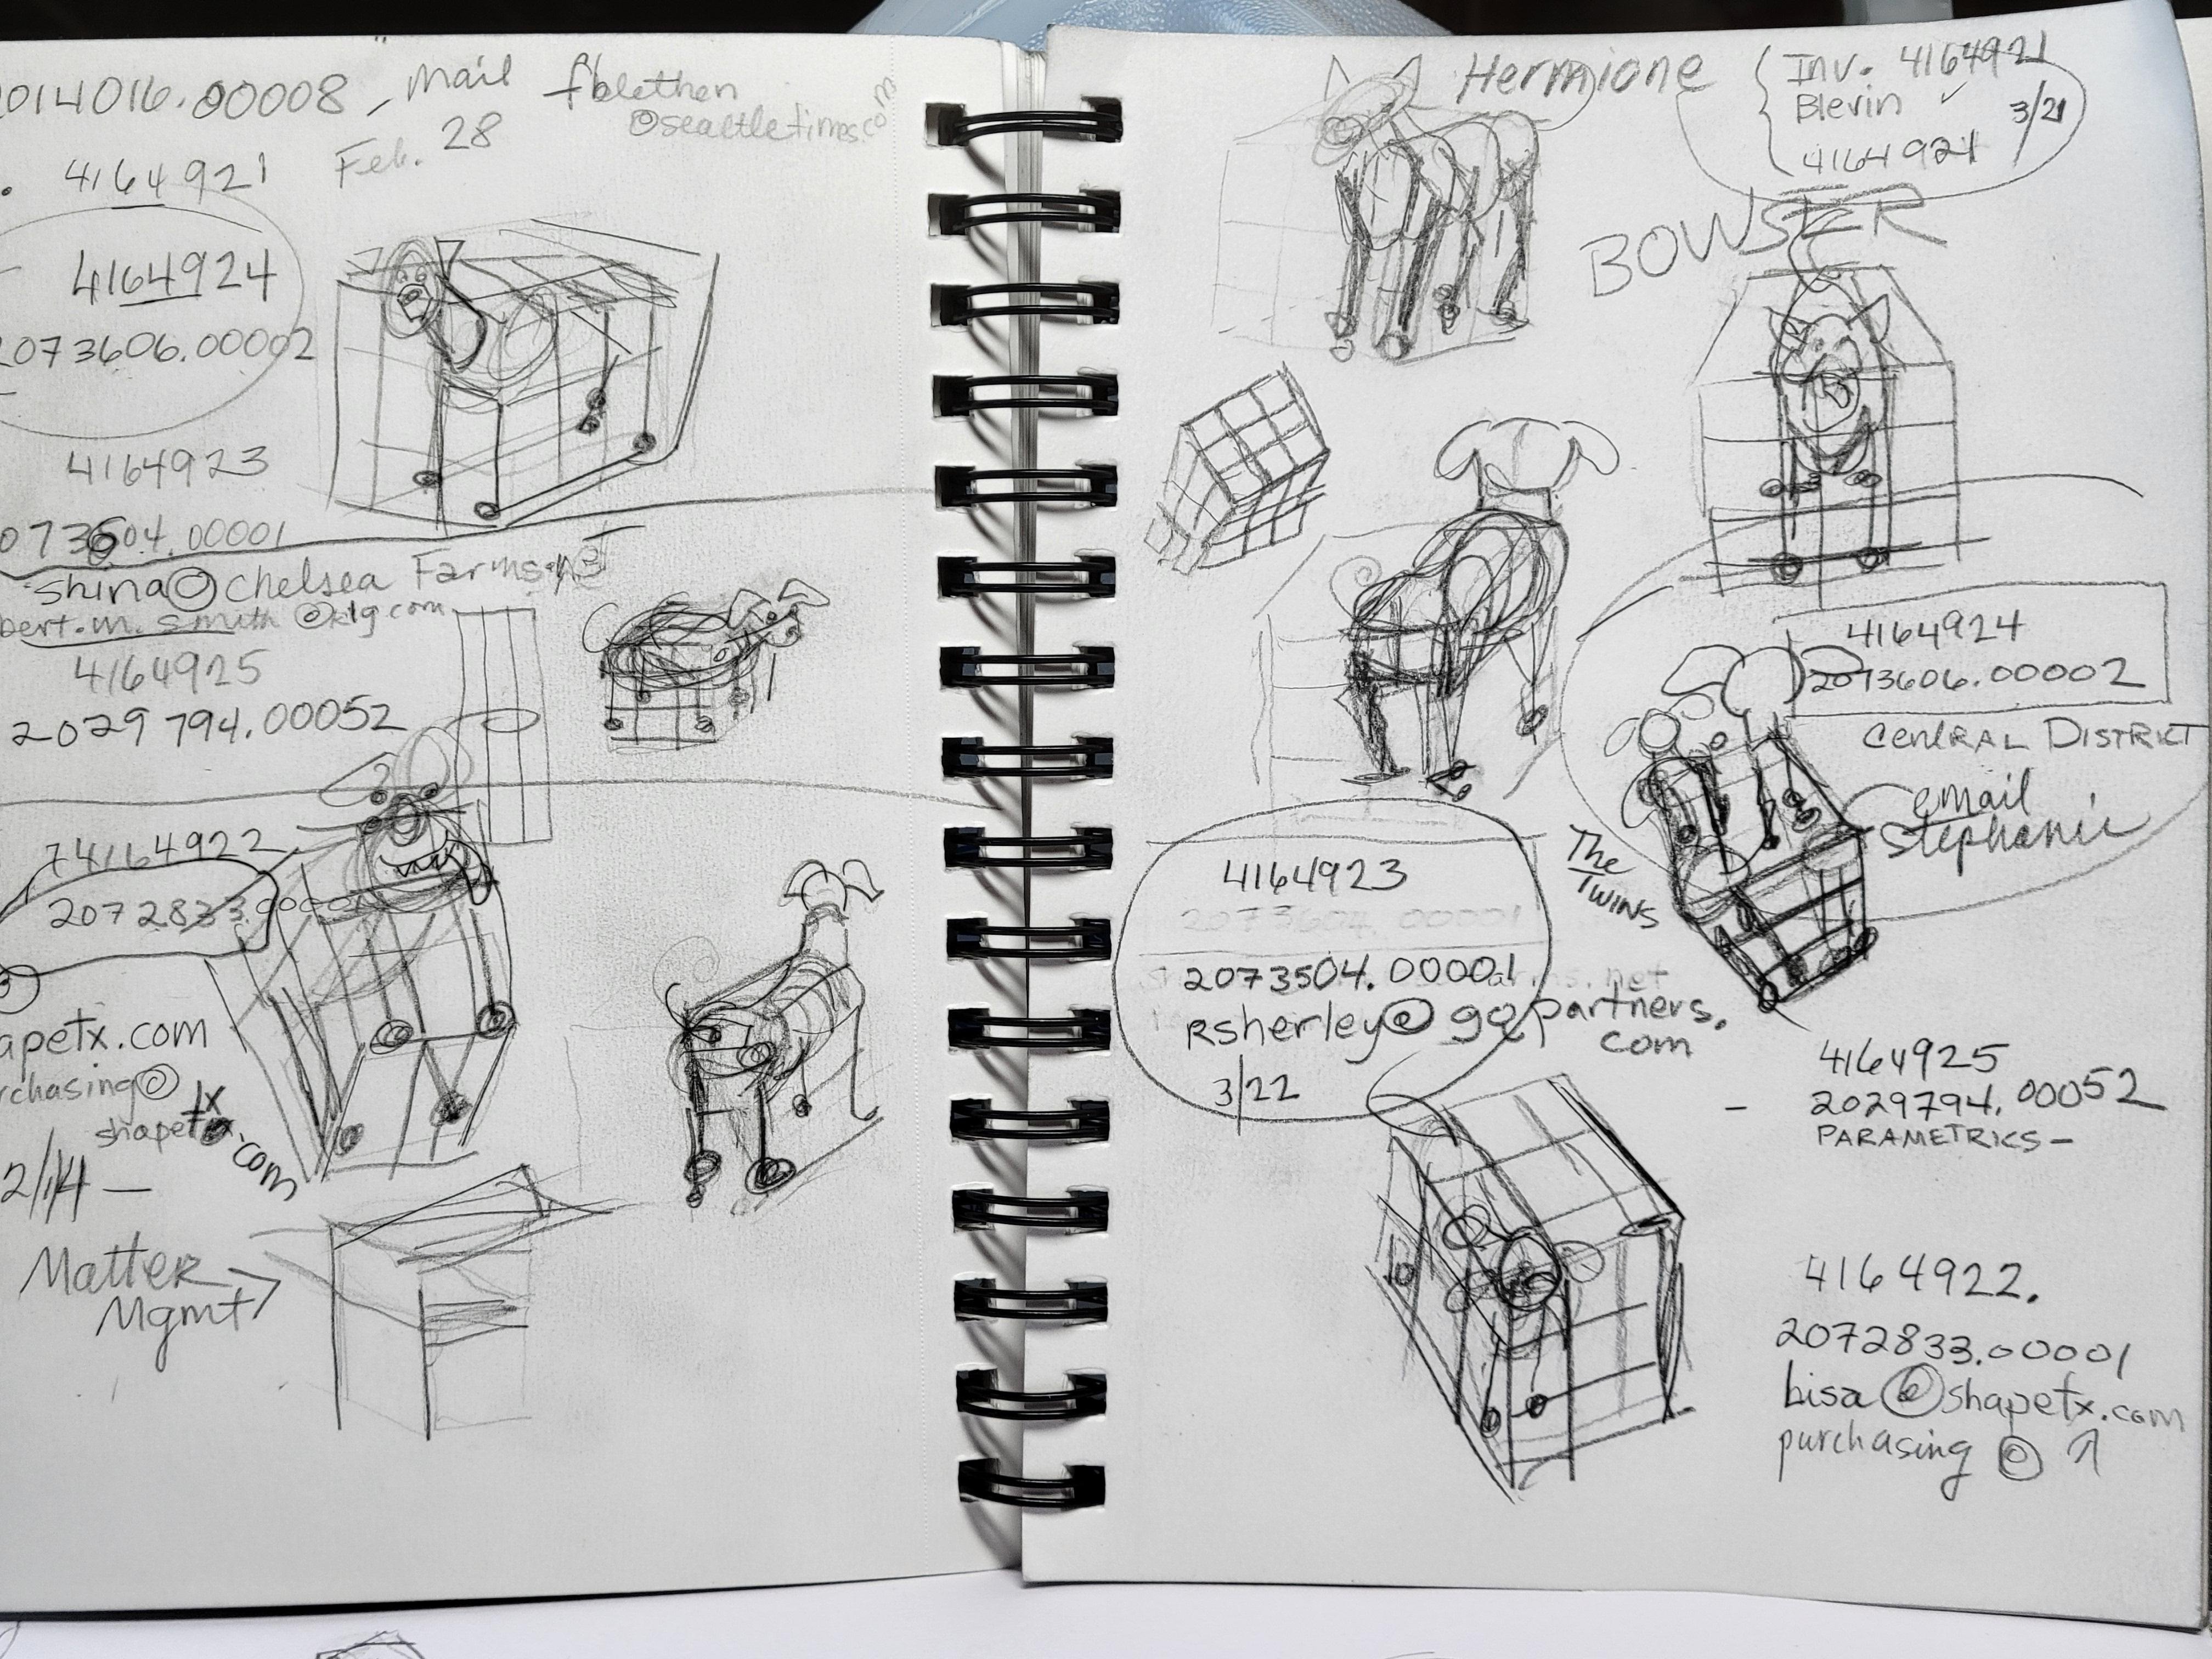 2014016.00008 - Mail fblethen
@seattletimes.com
Feb. 28
4164921
4164924
2073606.00002
4164923
073604.00001
shina@chelsea Farms
bert.m.smith@klg.com
4164925
2029794.00052
74164922
2072833.0000
apetx.com
rchasing@
shapetx.com
2/14 —
Matter
Mgmt
Hermione
Inv. 4164921
Blevin ✓
3/21
4164921
BOWSER
4164924
2073606.00002
CENTRAL DISTRICT
email
Stephanie
The
TWINS
4164923
2073604.00001
2073504.00001
Rsherley@gqpartners.
com
3/22
4164925
- 2029794.00052
PARAMETRICS -
4164922.
2072833.00001
Lisa@shapetx.com
purchasing @ ↑